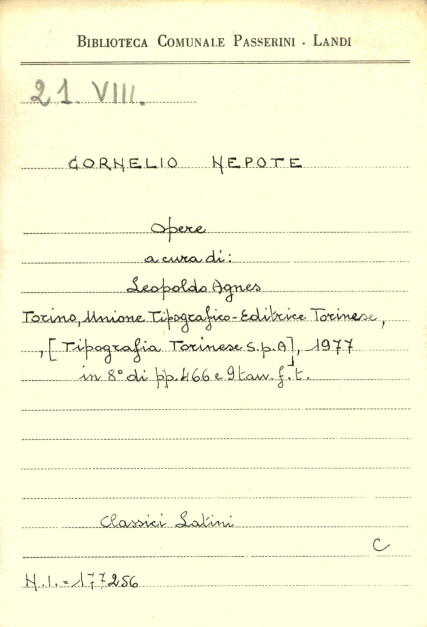 BIBLIOTECA COMUNALE PASSERINI - LANDI
21. VIII.
CORNELIO NEPOTE
Opere
a cura di:
Leopoldo Agnes
Torino, Unione Tipografico-Editrice Torinese,
, [Tipografia Torinese S.p.A], 1977
in 8° di pp. 466 e 9 tav. f.t.
Classici Latini
C
N.I. = 177256